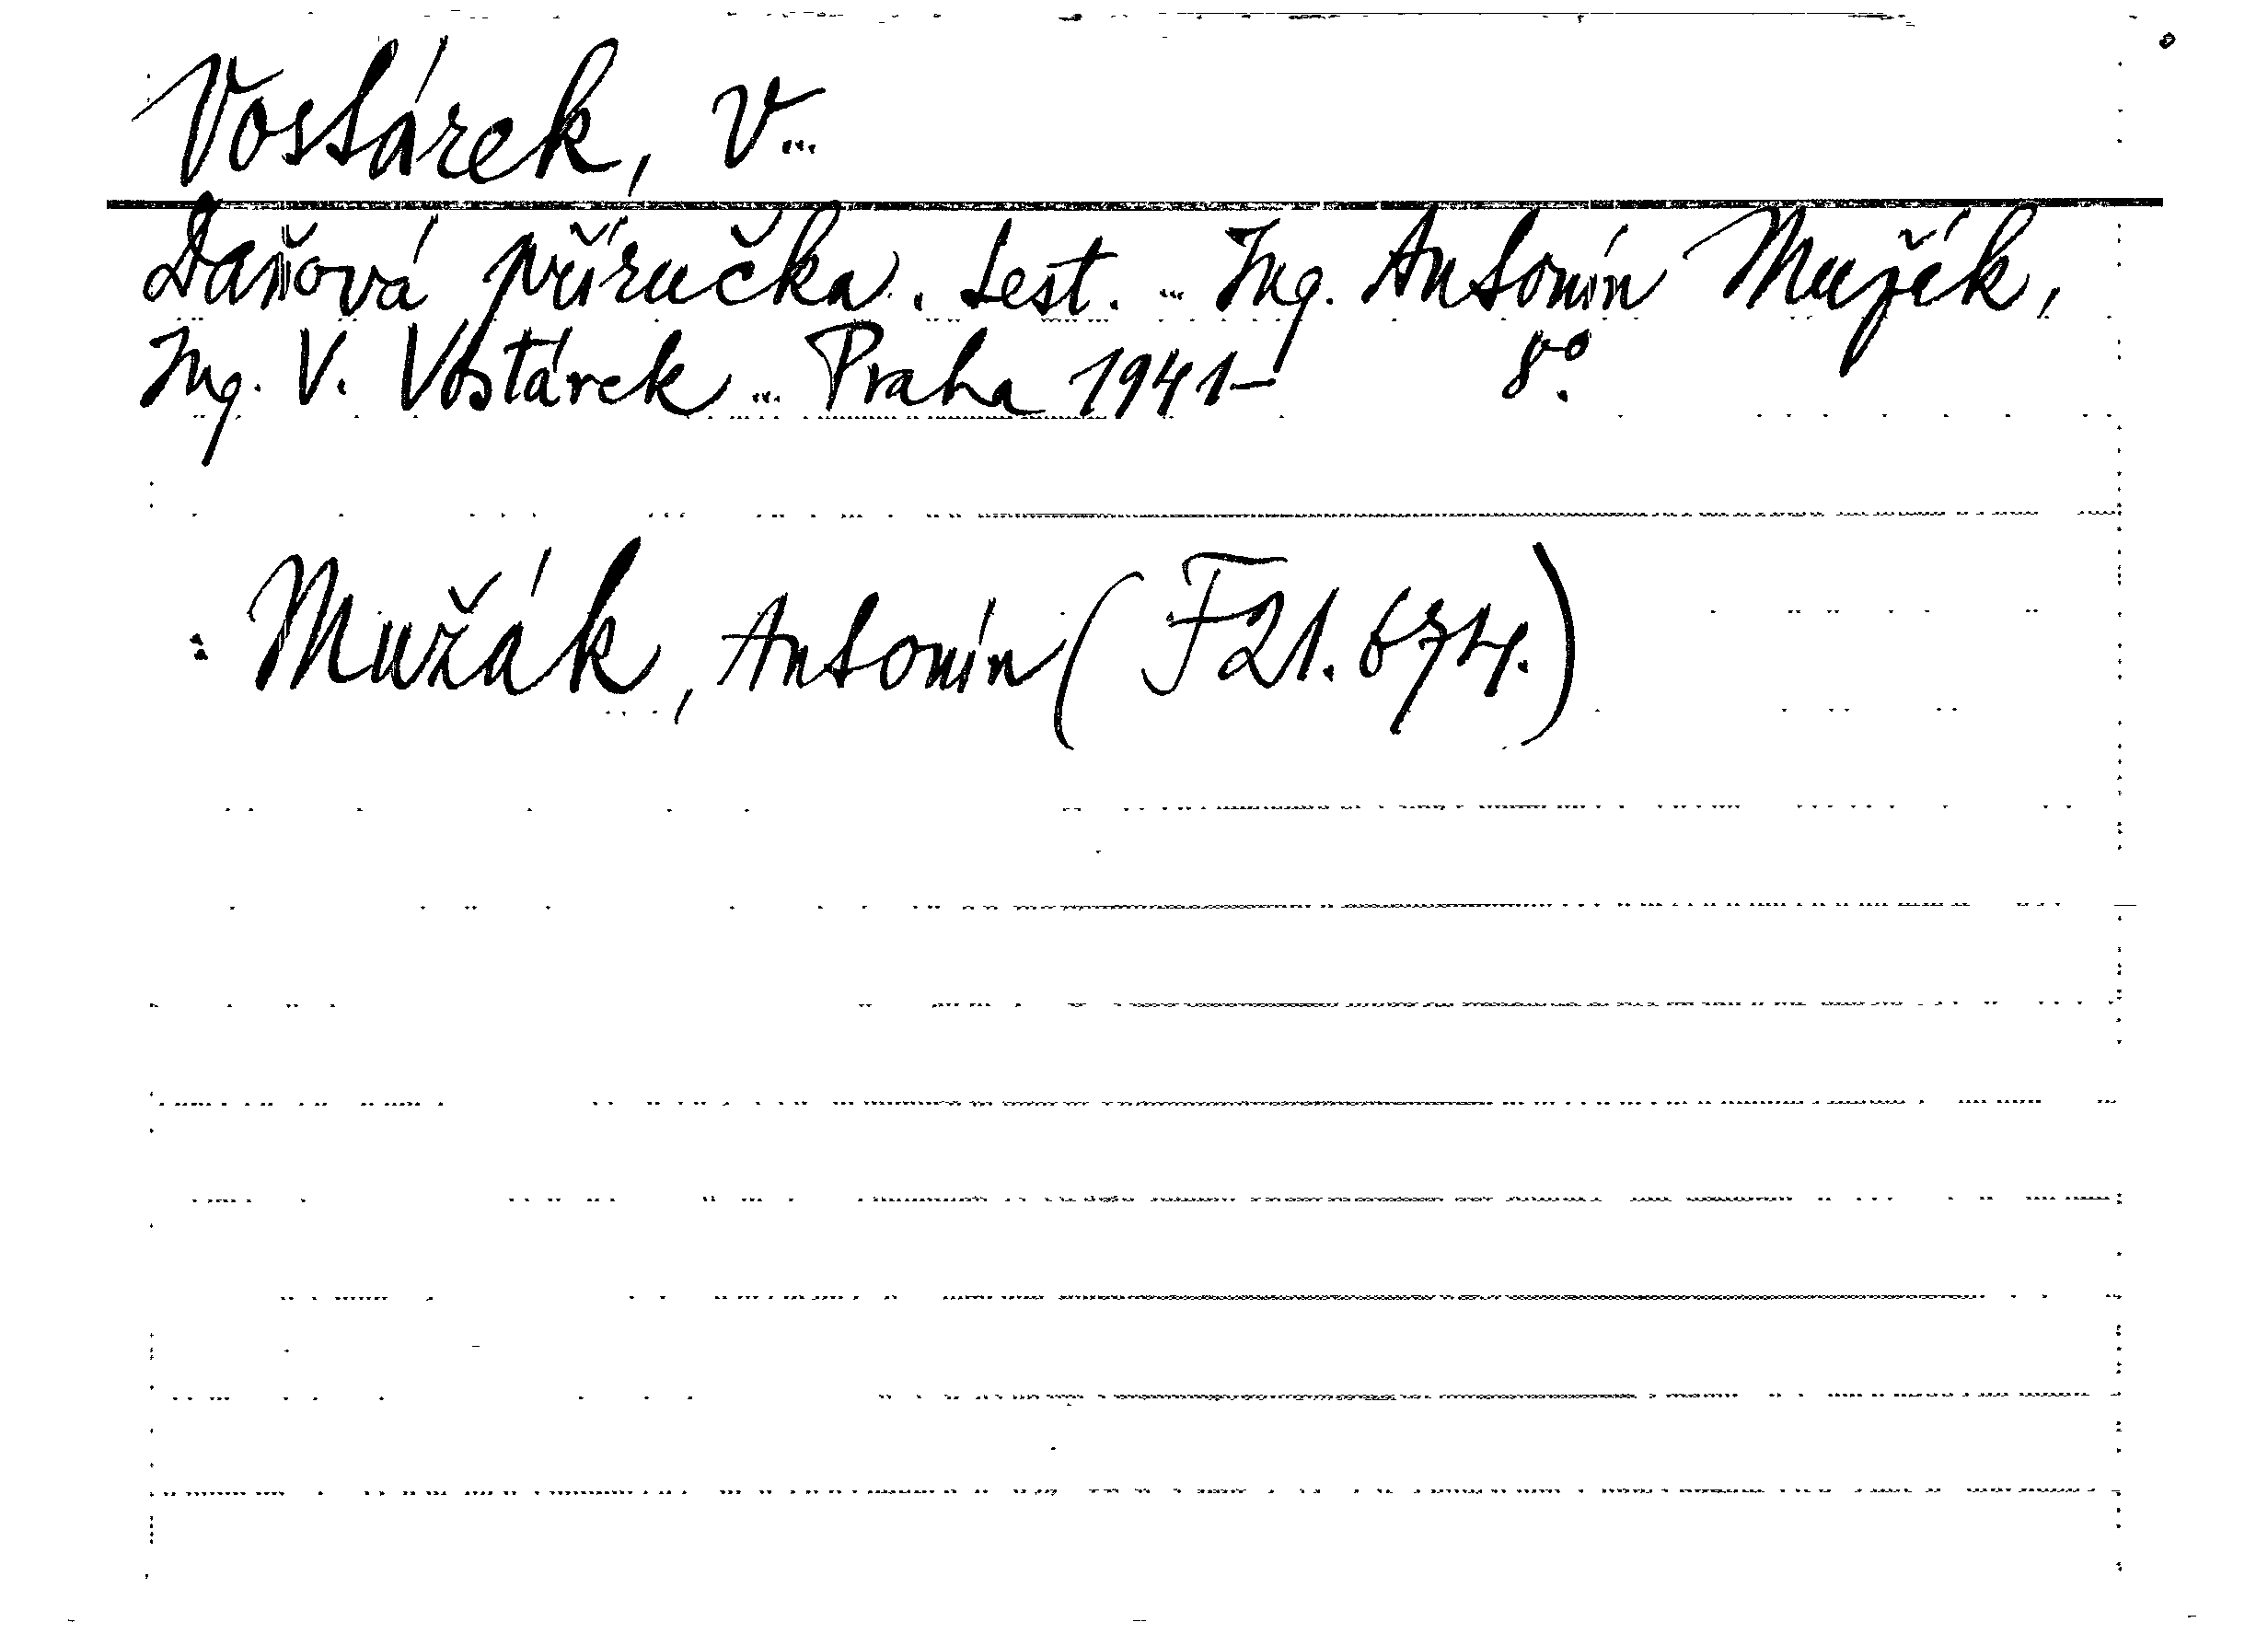 Vostárek, V...
Daňová příručka. Sest. ... Ing. Antonín Mužák,
Ing. V. Vostárek ... Praha 1941- 8°.
: Mužák, Antonín (F21.674.)